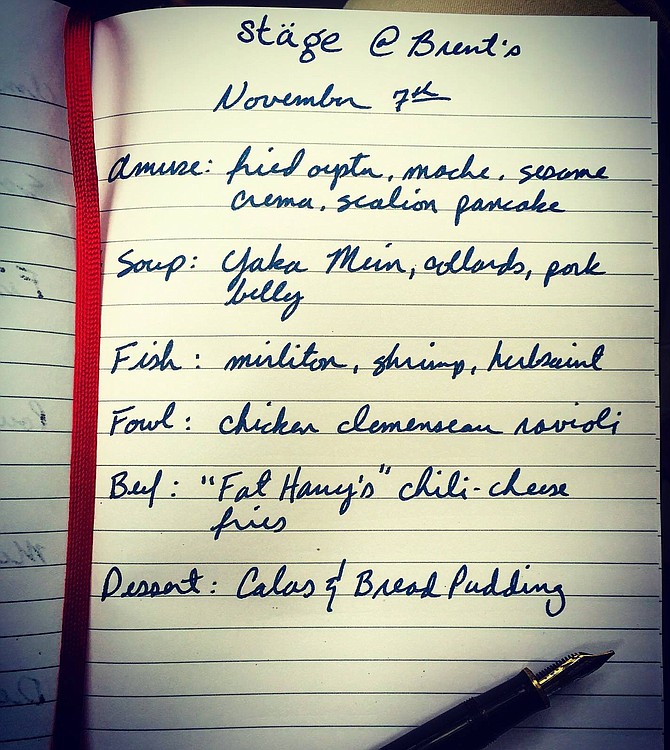 stäge @ Brent's
November 7th
Amuse: fried oyster, mache, sesame
crema, scalion pancake
Soup: Yaka Mein, collards, pork
belly
Fish: mirliton, shrimp, herbsaint
Fowl: chicken clemenseau ravioli
Beef: "Fat Harry's" chili-cheese
fries
Dessert: Calas & Bread Pudding